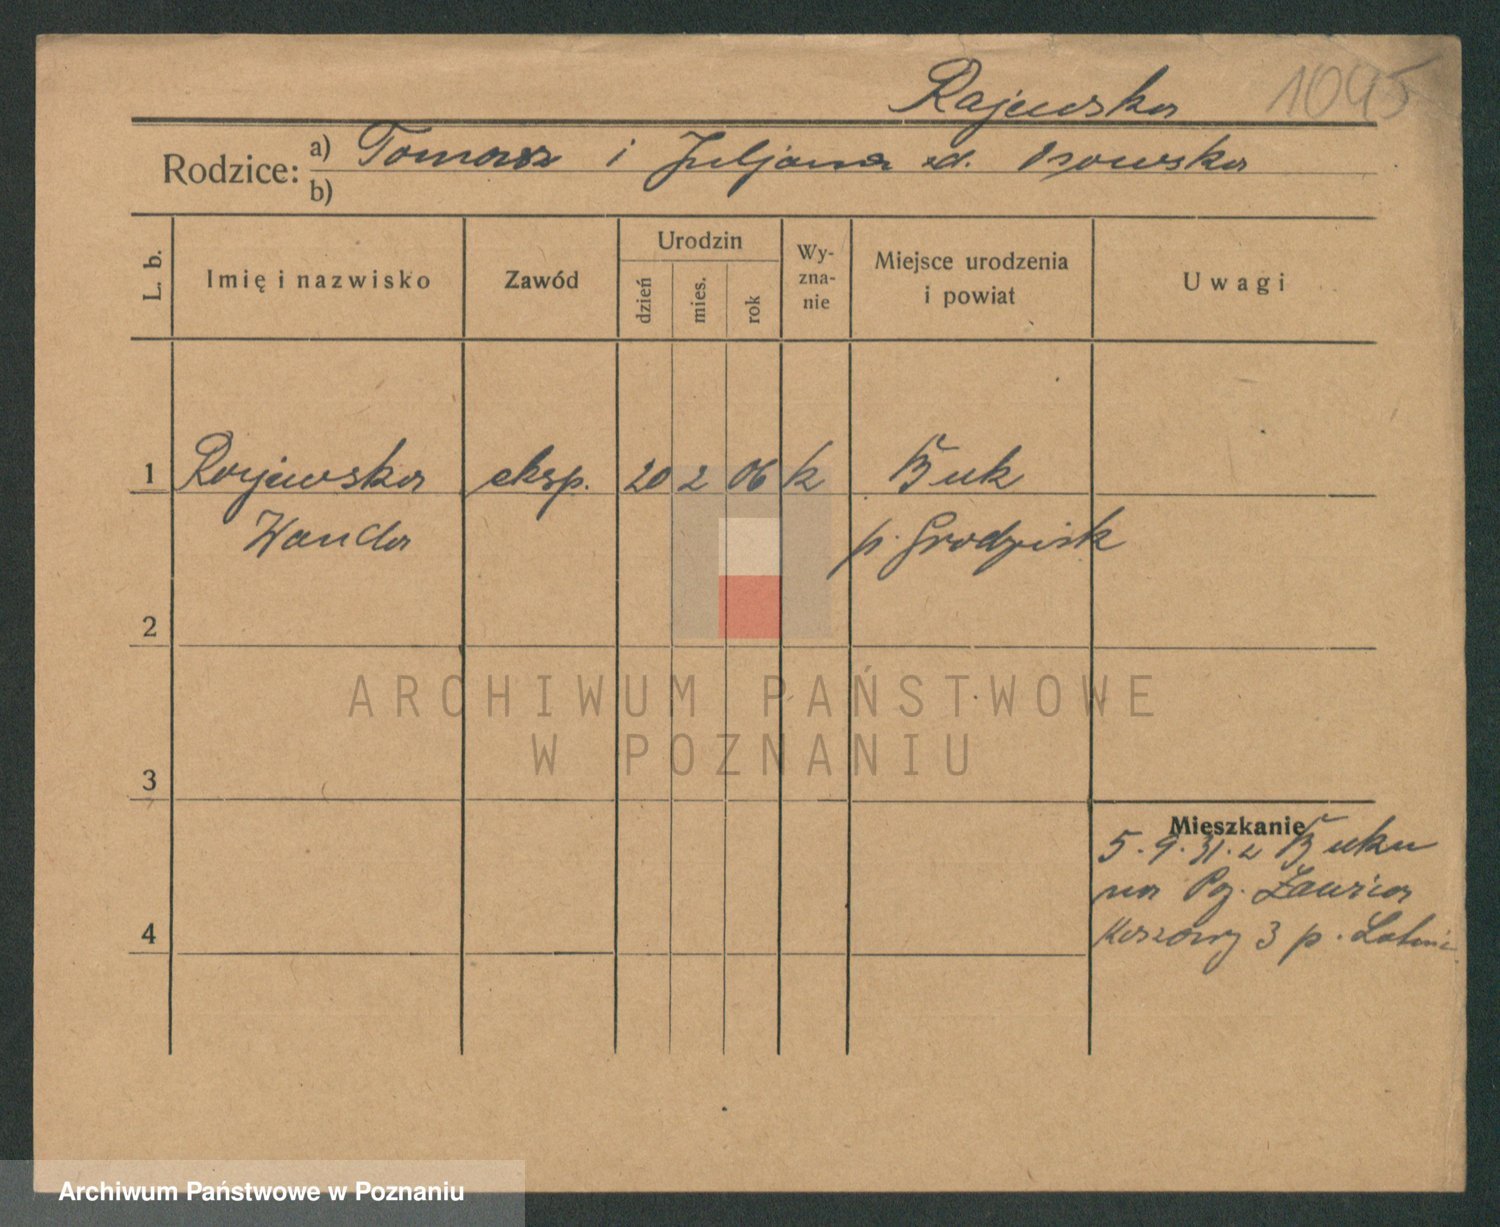 Rajewska
1095
Rodzice: a) Tomasz i Juljanna zd. Osowska
b)
L. b.
Imię i nazwisko
Zawód
Urodzin
dzień
mies.
rok
Wy-
zna-
nie
Miejsce urodzenia
i powiat
Uwagi
1 Rajewska eksp. 20 2 06 k Buk
Wanda p. Grodzisk
2
ARCHIWUM PAŃSTWOWE
W POZNANIU
3
Mieszkanie
5.9.31. z Buku
na Poz. Ławica
3 p.
4
Archiwum Państwowe w Poznaniu